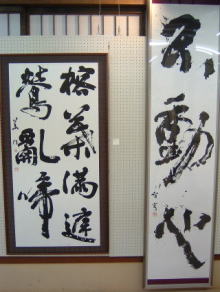 不動心
榕葉滿庭
鶯亂啼